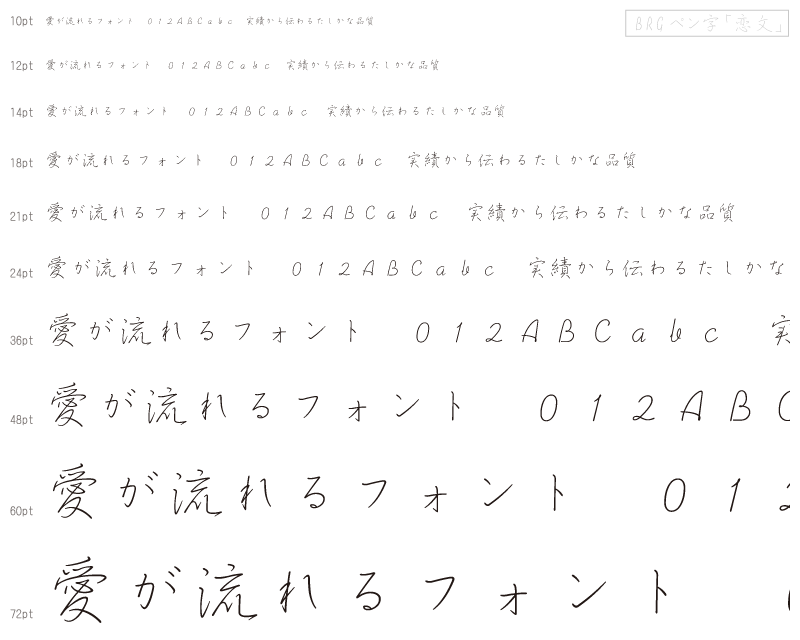 BRGペン字「恋文」
10pt 愛が流れるフォント 012ABCabc 実績から伝わるたしかな品質
12pt 愛が流れるフォント 012ABCabc 実績から伝わるたしかな品質
14pt 愛が流れるフォント 012ABCabc 実績から伝わるたしかな品質
18pt 愛が流れるフォント 012ABCabc 実績から伝わるたしかな品質
21pt 愛が流れるフォント 012ABCabc 実績から伝わるたしかな品質
24pt 愛が流れるフォント 012ABCabc 実績から伝わるたしかな
36pt 愛が流れるフォント 012ABCabc 実
48pt 愛が流れるフォント 012ABC
60pt 愛が流れるフォント 012
72pt 愛が流れるフォント